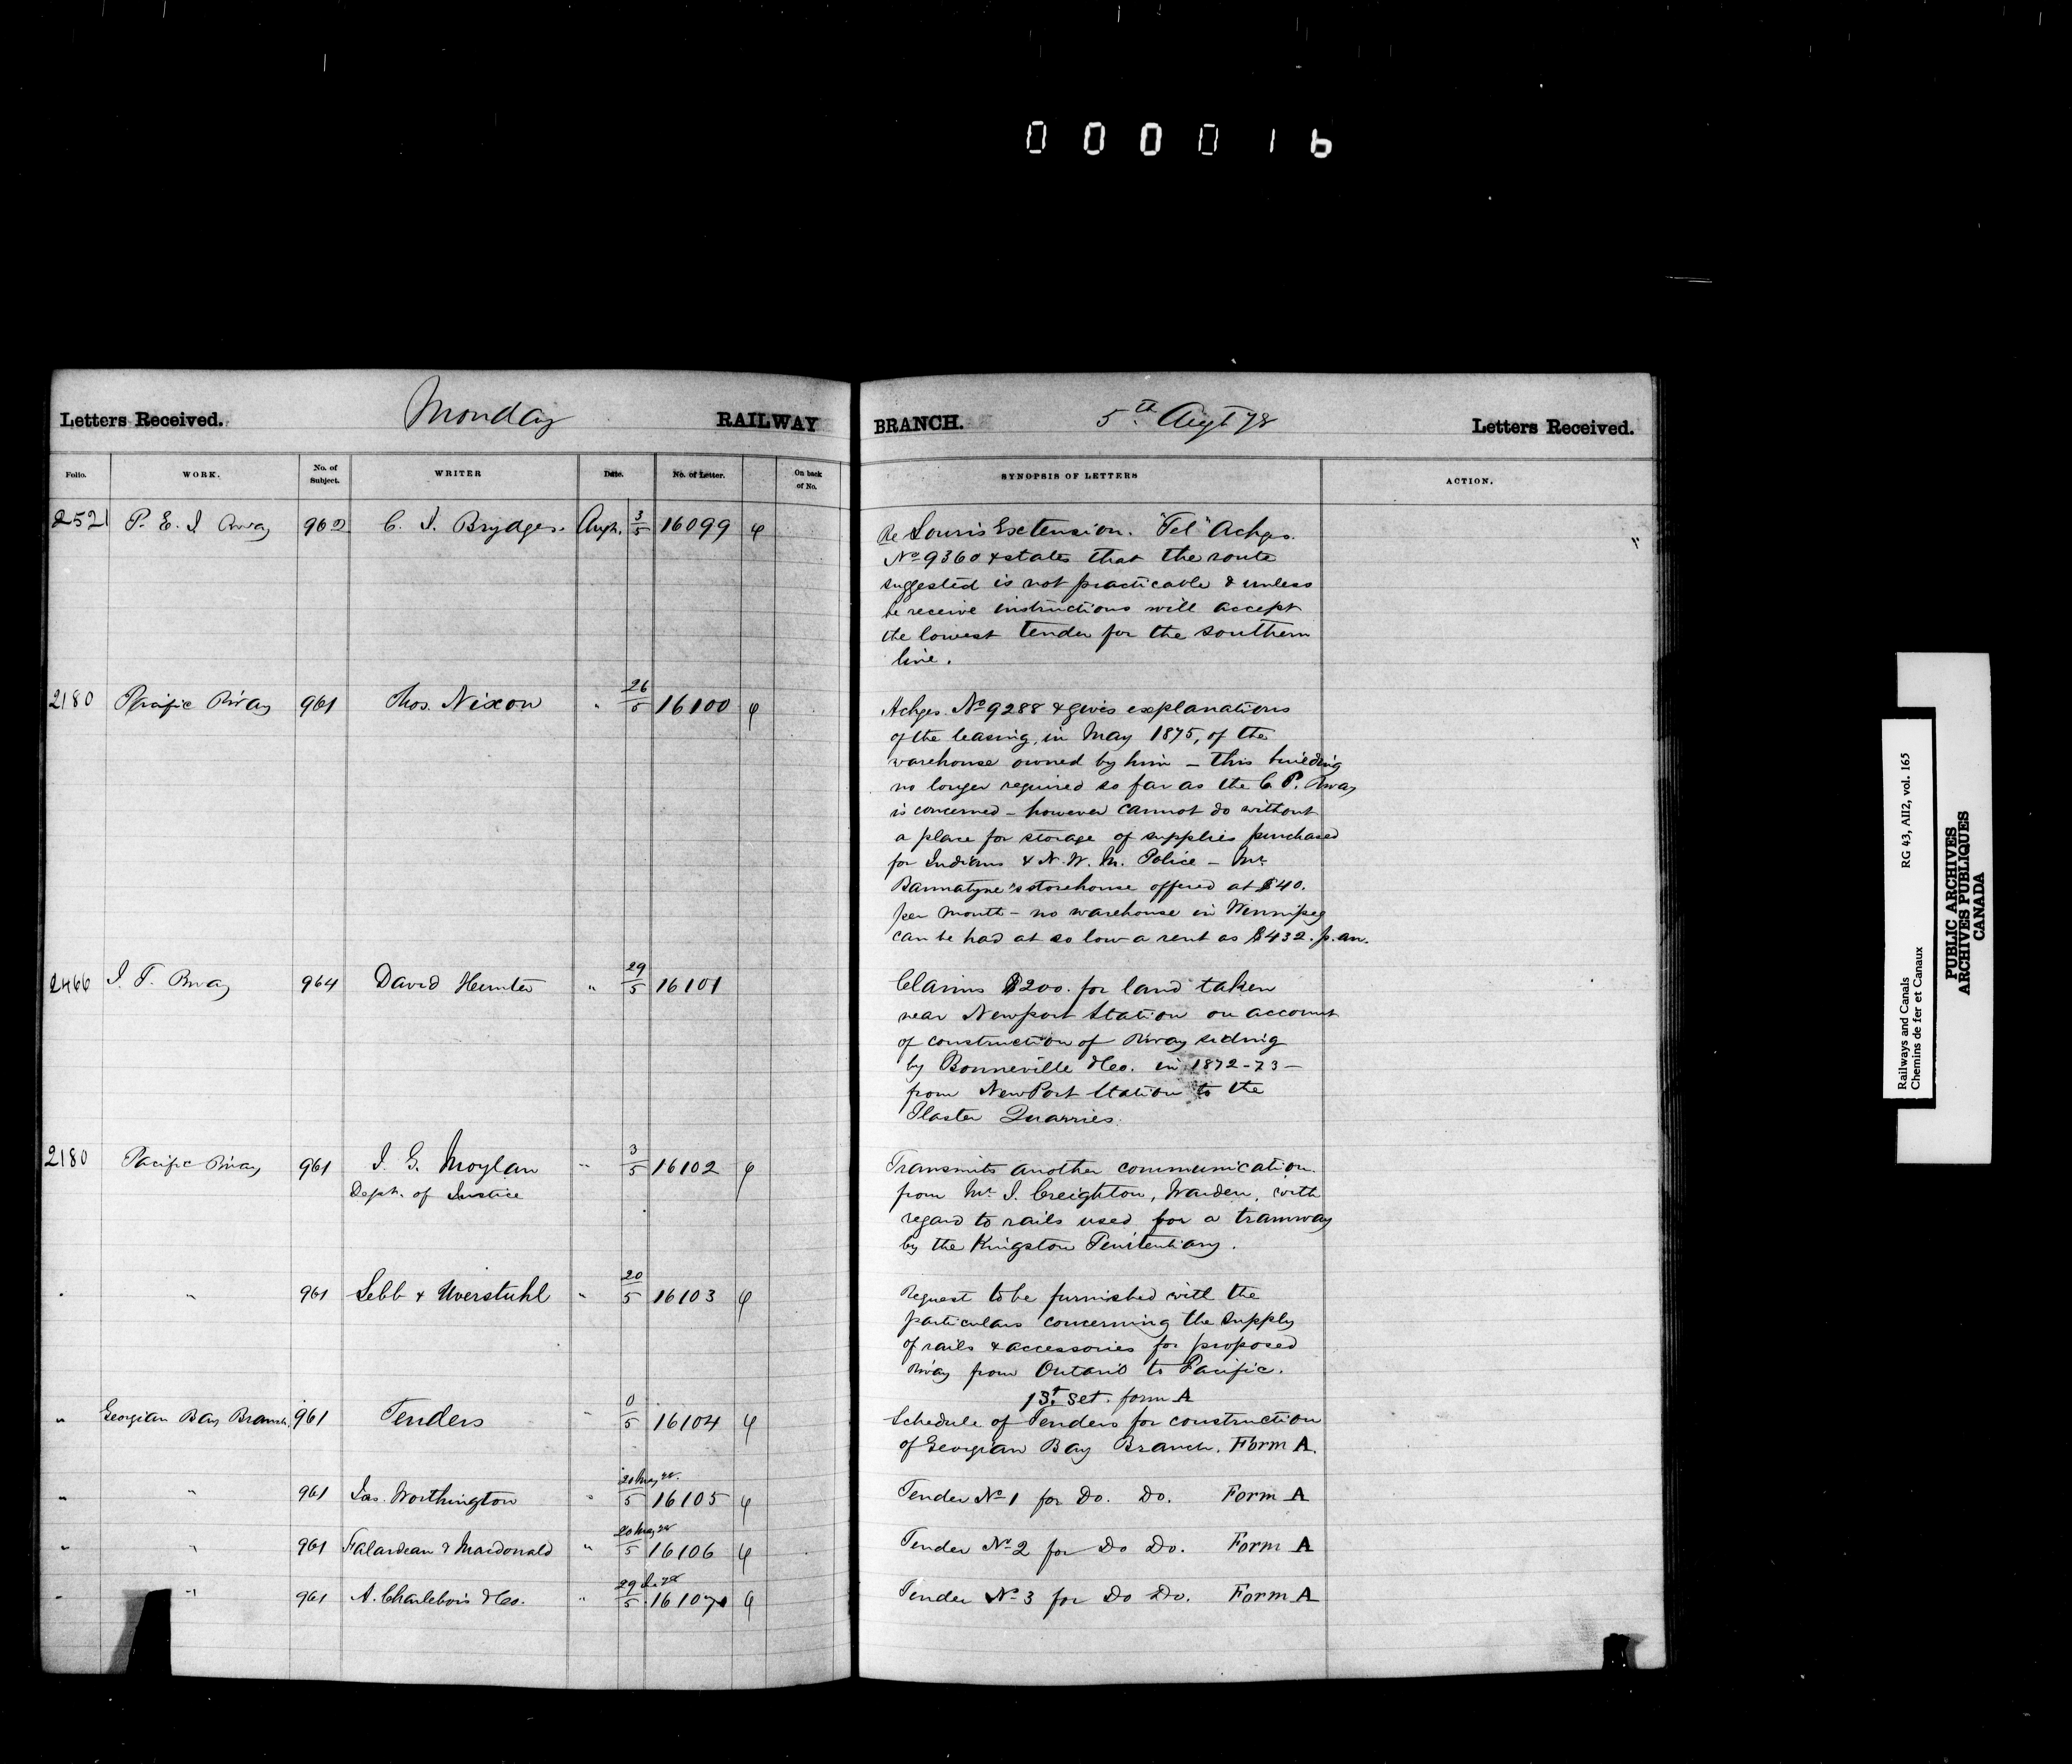 000016
Letters Received. Monday RAILWAY
BRANCH. 5th Augt 78 Letters Received.
Folio. WORK. No. of Subject. WRITER Date. No. of Letter. On back of No.
SYNOPSIS OF LETTERS ACTION.
2521 P. E. I Rway 962 C. J. Brydges. Augt. 3/5 16099 φ
Re Souris Extension. "Tel" Ackgs.
No 9360 & states that the route
suggested is not practicable & unless
he receive instructions will accept
the lowest tender for the southern
line.
2180 Pacific Rway 961 Thos. Nixon " 26/5 16100 φ
Ackges. No 9288 & gives explanations
of the leasing, in May 1875, of the
warehouse owned by him – this building
no longer required so far as the C. P. Rway
is concerned – however cannot do without
a place for storage of supplies purchased
for Indians & N. W. M. Police – Mr.
Bannatyne's storehouse offered at $40.
per month – no warehouse in Winnipeg
can be had at so low a rent as $432. p. an.
2466 964 David Hunter " 29/5 16101
Claims $200. for land taken
near Newport Station on account
of construction of Rway siding
by Bonneville & Co. in 1872-73 –
from NewPort Station to the
Plaster Quarries.
2180 Pacific Rway 961 J. G. Moylan " 3/5 16102 φ
Dept. of Justice
Transmits another communication
from Mr. J. Creighton, Warden, with
regard to rails used for a tramway
by the Kingston Penitentiary.
" " 961 & " 20/5 16103 φ
Request to be furnished with the
particulars concerning the supply
of rails & accessories for proposed
Rway from Ontario to Pacific.
1st. Set. form A
" Georgian Bay Branch. 961 Tenders " 0/5 16104 φ
Schedule of Tenders for construction
of Georgian Bay Branch. Form A.
" " 961 Jas. Worthington " /5 16105 φ
Tender No 1 for Do. Do. Form A
" " 961 Falardeau & Macdonald " /5 16106 φ
Tender No 2 for Do Do. Form A
" " 961 A. Charlebois & Co. " /5 16107 φ
Tender No 3 for Do Do. Form A
Railways and Canals RG 43, AII2, vol. 165
Chemins de fer et Canaux
PUBLIC ARCHIVES
ARCHIVES PUBLIQUES
CANADA